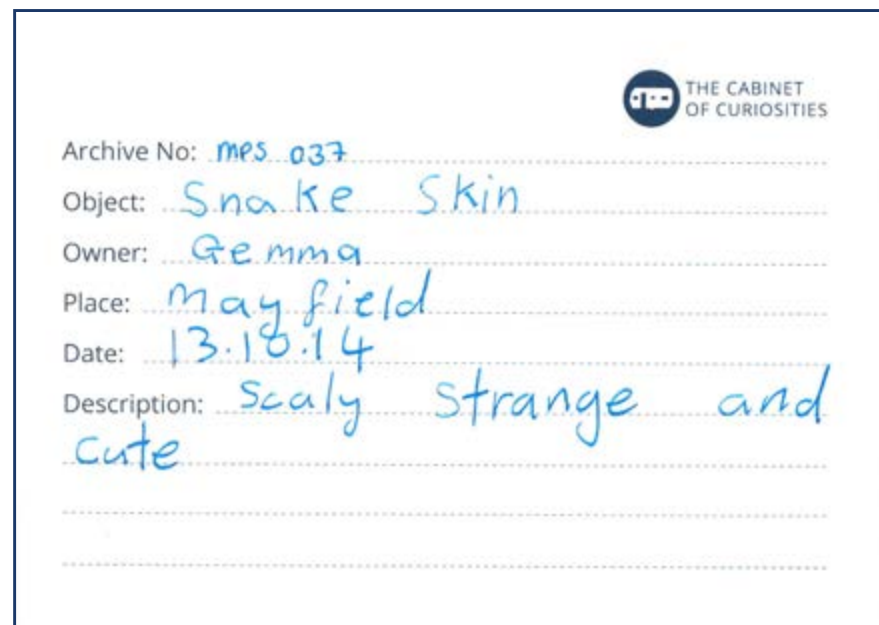 THE CABINET
OF CURIOSITIES
Archive No: mps 037
Object: Snake Skin
Owner: Gemma
Place: Mayfield
Date: 13.10.14
Description: Scaly Strange and
cute